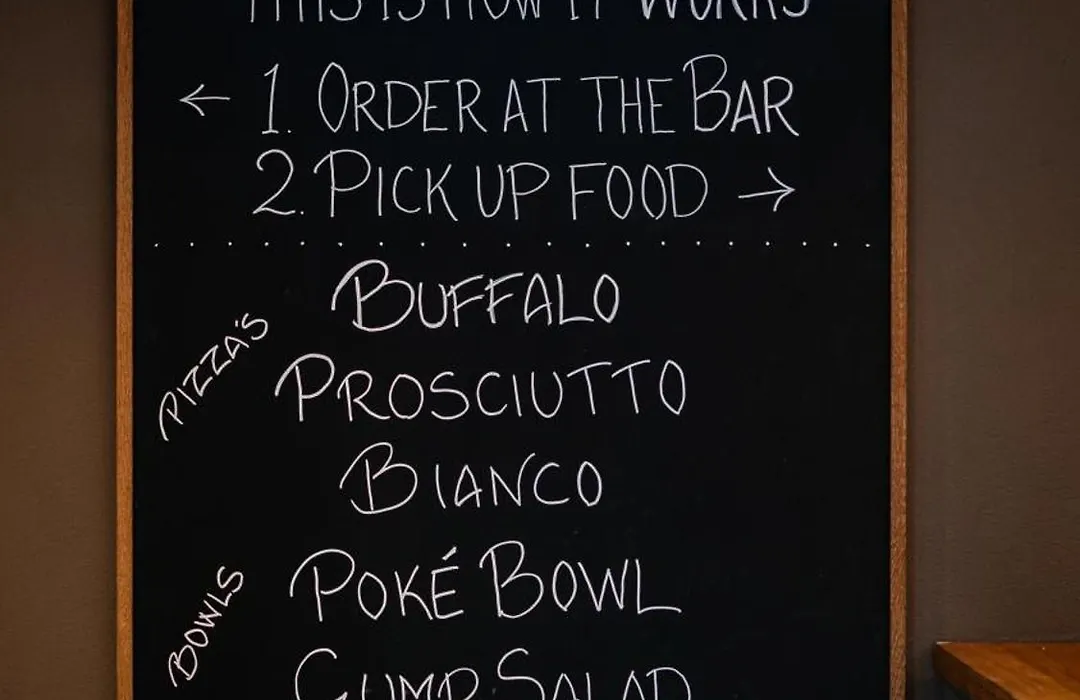 THIS IS HOW IT WORKS
← 1. ORDER AT THE BAR
2. PICK UP FOOD →
PIZZA'S
BUFFALO
PROSCIUTTO
BIANCO
BOWLS
POKÉ BOWL
GUMP SALAD